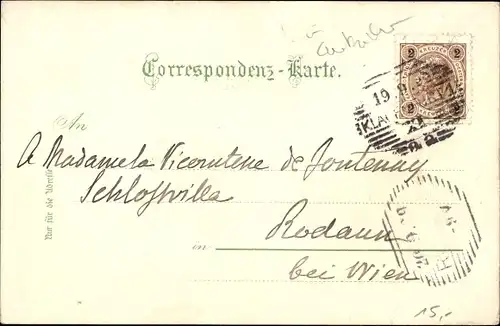 Correspondenz-Karte.
2 KREUZER 2
2 2
19
KLA
An
A Madame la Vicomtesse de Fontenay
Schloßvilla
Rodaun
in
bei Wien
Nur für die Adresse
15,-